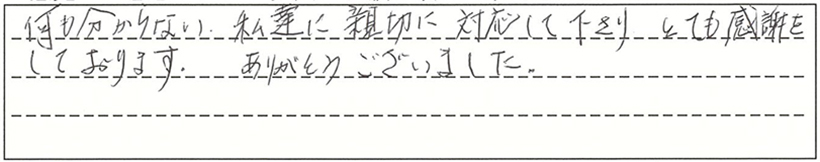 何も分からない、私達に親切に対応して下さり とても感謝を
しております。 ありがとうございました。